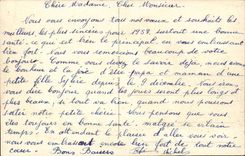 Chère Madame, Cher Monsieur.
Nous vous envoyons tous nos vœux et souhaits les
meilleurs, les plus sincères pour 1959. surtout une bonne
santé, ce qui est bien le principal, en vous embrassant
bien fort. Nous vous remercions beaucoup de votre
bonjour. Comme vous devez le savoir déjà, nous avons
le bonheur d'être papa et maman d'une
petite fille Sylvie depuis le 2 décembre. Tous
vous dire bonjour quand les jours seront plus longs et
plus beaux, si tout va bien, quand nous pourrons
aller notre petite chérie. Nous pensons que vous
êtes toujours en bonne santé, malgré ce vilain
temps. En attendant le plaisir d'aller vous voir
nous vous embrassons encore bien fort de tout notre
cœur. Bons Baisers